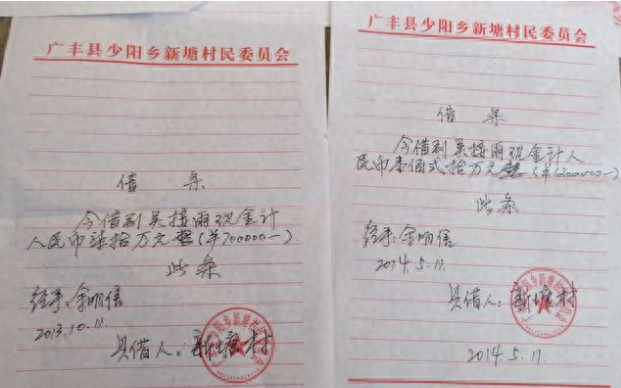 广丰县少阳乡新塘村民委员会
借条
今借到吴接雨现金计
人民币柒拾万元整(¥700000—)
此条
经手:余明信
2013.10.11.
具借人:新塘村
广丰县少阳乡新塘村民委员会
借条
今借到吴接雨现金计人
民币壹佰弍拾万元整(¥1200000—)
此条
经手:余明信
2014.5.11.
具借人:新塘村
2014.5.11.